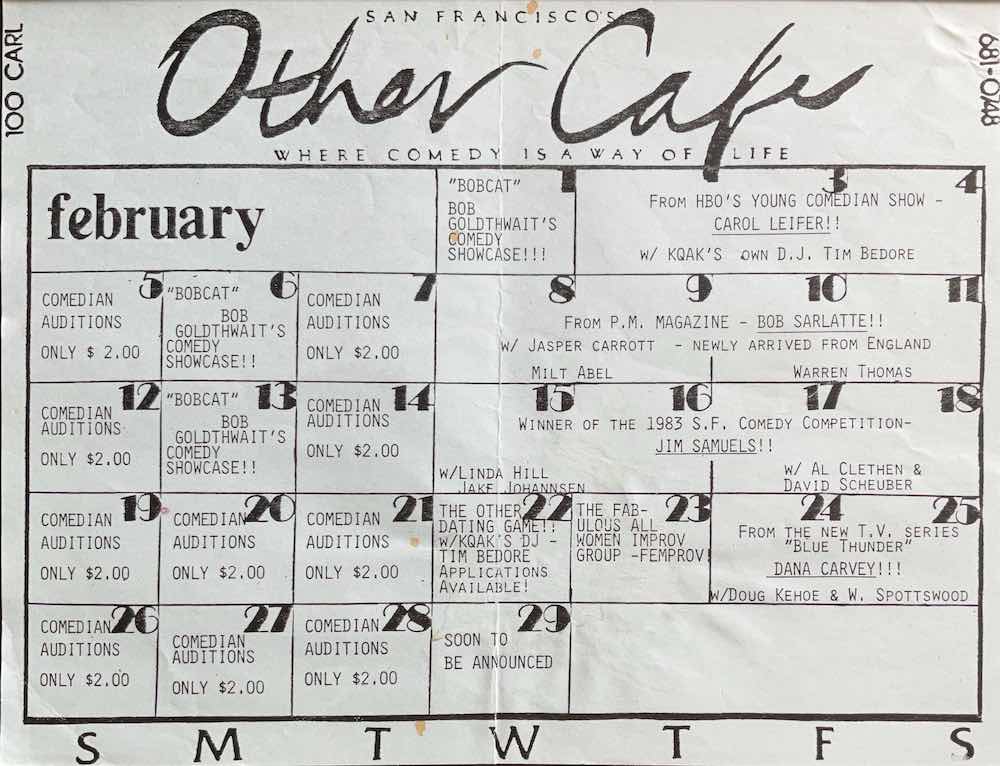 SAN FRANCISCO'S
Other Cafe
100 CARL
681-0748
WHERE COMEDY IS A WAY OF LIFE
february
1
"BOBCAT"
BOB
GOLDTHWAIT'S
COMEDY
SHOWCASE!!!
3 4
FROM HBO'S YOUNG COMEDIAN SHOW -
CAROL LEIFER!!
W/ KQAK'S OWN D.J. TIM BEDORE
5
COMEDIAN
AUDITIONS
ONLY $ 2.00
6
"BOBCAT"
BOB
GOLDTHWAIT'S
COMEDY
SHOWCASE!!
7
COMEDIAN
AUDITIONS
ONLY $2.00
8 9 10 11
FROM P.M. MAGAZINE - BOB SARLATTE!!
W/ JASPER CARROTT - NEWLY ARRIVED FROM ENGLAND
MILT ABEL
WARREN THOMAS
12
COMEDIAN
AUDITIONS
ONLY $2.00
13
"BOBCAT"
BOB
GOLDTHWAIT'S
COMEDY
SHOWCASE!!
14
COMEDIAN
AUDITIONS
ONLY $2.00
15 16 17 18
WINNER OF THE 1983 S.F. COMEDY COMPETITION-
JIM SAMUELS!!
W/LINDA HILL
JAKE JOHANNSEN
W/ AL CLETHEN &
DAVID SCHEUBER
19
COMEDIAN
AUDITIONS
ONLY $2.00
20
COMEDIAN
AUDITIONS
ONLY $2.00
21
COMEDIAN
AUDITIONS
ONLY $2.00
22
THE OTHER
DATING GAME!!
W/KQAK'S DJ -
TIM BEDORE
APPLICATIONS
AVAILABLE!
23
THE FAB-
ULOUS ALL
WOMEN IMPROV
GROUP -FEMPROV!
24 25
FROM THE NEW T.V. SERIES
"BLUE THUNDER"
DANA CARVEY!!!
W/DOUG KEHOE & W. SPOTTSWOOD
26
COMEDIAN
AUDITIONS
ONLY $2.00
27
COMEDIAN
AUDITIONS
ONLY $2.00
28
COMEDIAN
AUDITIONS
ONLY $2.00
29
SOON TO
BE ANNOUNCED
S M T W T F S